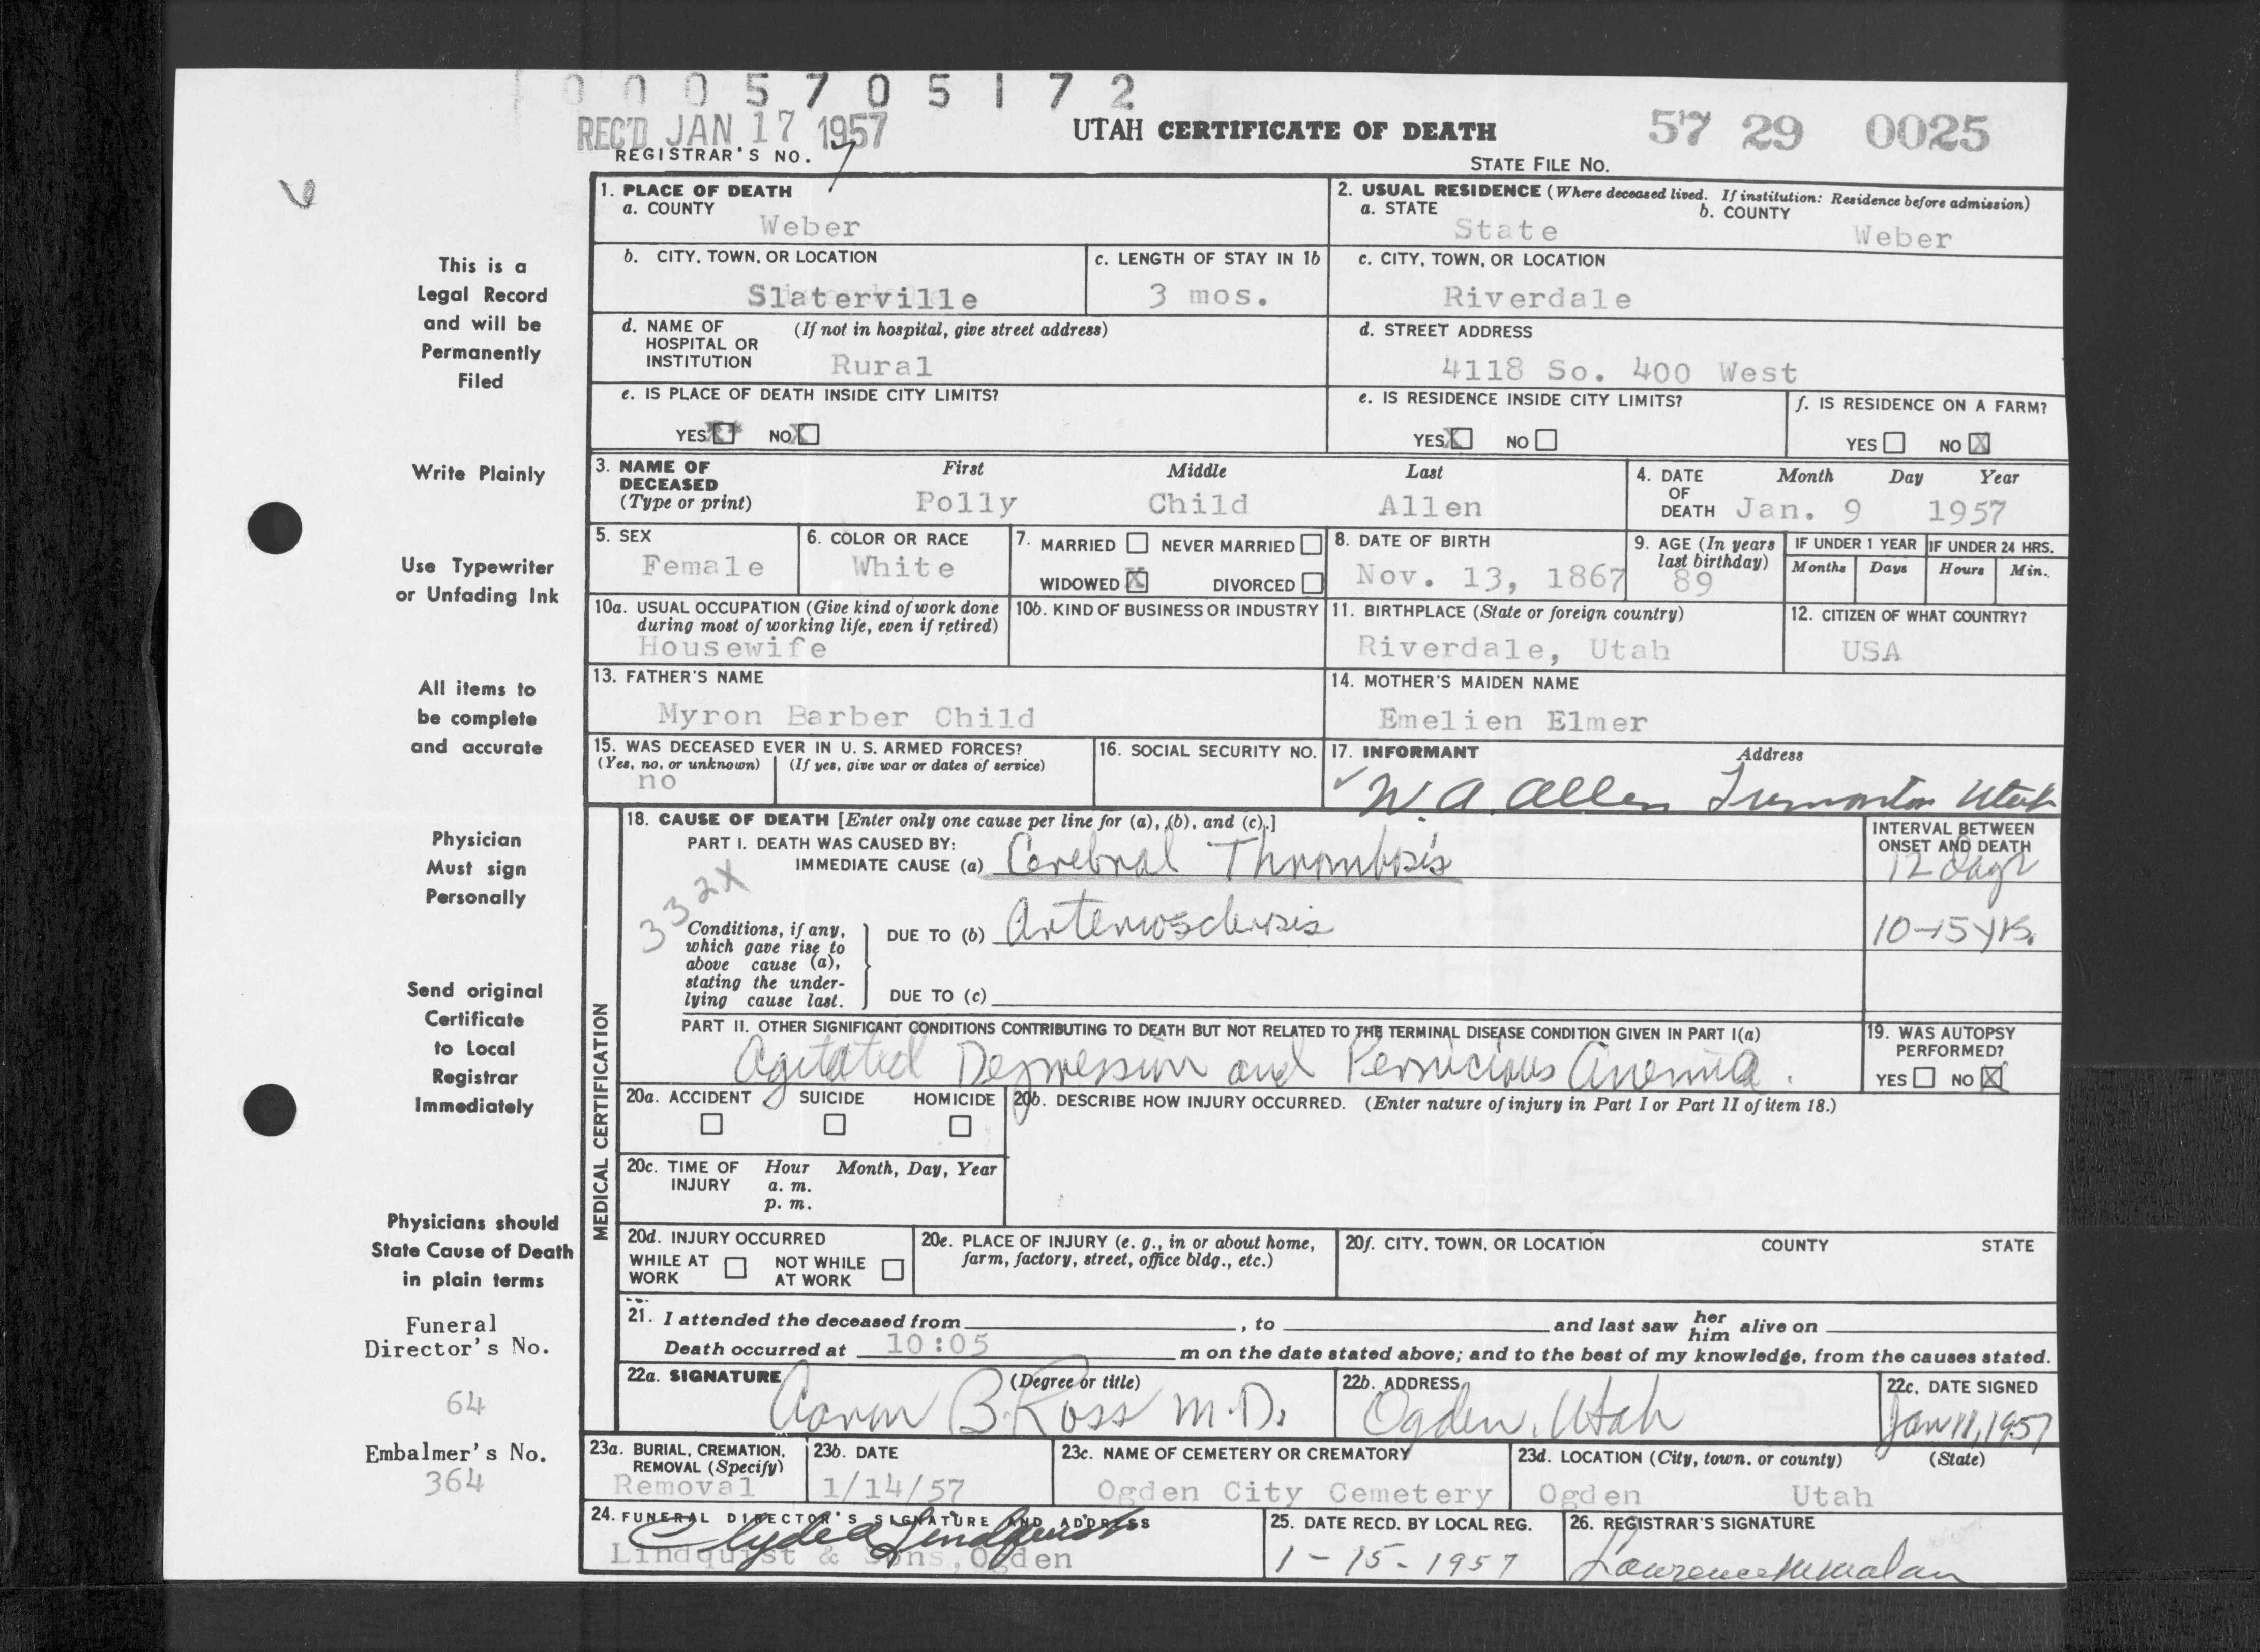 0005705172
REC'D JAN 17 1957
UTAH CERTIFICATE OF DEATH
57 29 0025
REGISTRAR'S NO. 7
STATE FILE NO.
This is a
Legal Record
and will be
Permanently
Filed
Write Plainly
Use Typewriter
or Unfading Ink
All items to
be complete
and accurate
Physician
Must sign
Personally
Send original
Certificate
to Local
Registrar
Immediately
Physicians should
State Cause of Death
in plain terms
Funeral
Director's No.
64
Embalmer's No.
364
1. PLACE OF DEATH
a. COUNTY
Weber
2. USUAL RESIDENCE (Where deceased lived. If institution: Residence before admission)
a. STATE
State
b. COUNTY
Weber
b. CITY, TOWN, OR LOCATION
Slaterville
c. LENGTH OF STAY IN 1b
3 mos.
c. CITY, TOWN, OR LOCATION
Riverdale
d. NAME OF (If not in hospital, give street address)
HOSPITAL OR
INSTITUTION Rural
d. STREET ADDRESS
4118 So. 400 West
e. IS PLACE OF DEATH INSIDE CITY LIMITS?
YES NO X
e. IS RESIDENCE INSIDE CITY LIMITS?
YES X NO
f. IS RESIDENCE ON A FARM?
YES NO X
3. NAME OF DECEASED (Type or print)
First Middle Last
Polly Child Allen
4. DATE OF DEATH
Month Day Year
Jan. 9 1957
5. SEX
Female
6. COLOR OR RACE
White
7. MARRIED NEVER MARRIED
WIDOWED X DIVORCED
8. DATE OF BIRTH
Nov. 13, 1867
9. AGE (In years
last birthday)
89
IF UNDER 1 YEAR IF UNDER 24 HRS.
Months Days Hours Min.
10a. USUAL OCCUPATION (Give kind of work done
during most of working life, even if retired)
Housewife
10b. KIND OF BUSINESS OR INDUSTRY
11. BIRTHPLACE (State or foreign country)
Riverdale, Utah
12. CITIZEN OF WHAT COUNTRY?
USA
13. FATHER'S NAME
Myron Barber Child
14. MOTHER'S MAIDEN NAME
Emelien Elmer
15. WAS DECEASED EVER IN U. S. ARMED FORCES?
(Yes, no, or unknown) (If yes, give war or dates of service)
no
16. SOCIAL SECURITY NO.
17. INFORMANT Address
W. A. Allen Tremonton Utah
MEDICAL CERTIFICATION
18. CAUSE OF DEATH [Enter only one cause per line for (a), (b), and (c).]
PART I. DEATH WAS CAUSED BY:
IMMEDIATE CAUSE (a) Cerebral Thrombosis
INTERVAL BETWEEN
ONSET AND DEATH
12 days
332X
Conditions, if any,
which gave rise to
above cause (a),
stating the under-
lying cause last.
DUE TO (b) Arteriosclerosis
10-15 yrs.
DUE TO (c)
PART II. OTHER SIGNIFICANT CONDITIONS CONTRIBUTING TO DEATH BUT NOT RELATED TO THE TERMINAL DISEASE CONDITION GIVEN IN PART I(a)
Agitated Depression and Pernicious Anemia.
19. WAS AUTOPSY
PERFORMED?
YES NO X
20a. ACCIDENT SUICIDE HOMICIDE
20b. DESCRIBE HOW INJURY OCCURRED. (Enter nature of injury in Part I or Part II of item 18.)
20c. TIME OF Hour Month, Day, Year
INJURY a. m.
p. m.
20d. INJURY OCCURRED
WHILE AT WORK NOT WHILE AT WORK
20e. PLACE OF INJURY (e. g., in or about home,
farm, factory, street, office bldg., etc.)
20f. CITY, TOWN, OR LOCATION COUNTY STATE
21. I attended the deceased from , to and last saw her him alive on
Death occurred at 10:05 m on the date stated above; and to the best of my knowledge, from the causes stated.
22a. SIGNATURE (Degree or title)
Aaron B. Ross M.D.
22b. ADDRESS
Ogden, Utah
22c. DATE SIGNED
Jan 11, 1957
23a. BURIAL, CREMATION,
REMOVAL (Specify)
Removal
23b. DATE
1/14/57
23c. NAME OF CEMETERY OR CREMATORY
Ogden City Cemetery
23d. LOCATION (City, town, or county) (State)
Ogden Utah
24. FUNERAL DIRECTOR'S SIGNATURE AND ADDRESS
Clyde Lindquist
Lindquist & Sons, Ogden
25. DATE RECD. BY LOCAL REG.
1-15-1957
26. REGISTRAR'S SIGNATURE
Lawrence M Malan